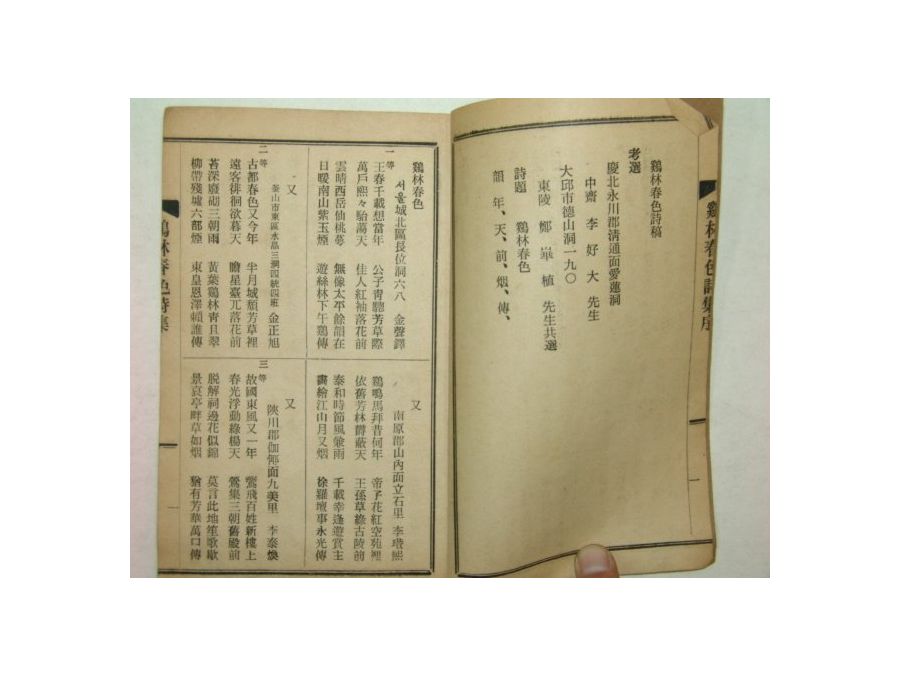 鷄林春色詩集序
鷄林春色詩稿
考選
慶北永川郡淸通面愛蓮洞
中齋 李好大 先生
大邱市德山洞一九〇
東陵 鄭 植 先生共選
詩題 鷄林春色
韻 年、天、前、烟、傳、
鷄林春色
서울城北區長位洞六八 金聲鐸
一等
王春千載想當年 公子靑驄芳草際
萬戶熙々駘蕩天 佳人紅袖落花前
雲晴西岳仙桃夢 無像太平餘韻在
日暖南山紫玉煙 遊絲林下午鷄傳
又
南原郡山內面立石里 李 熙
鷄鳴馬拜昔何年 帝子花紅空苑裡
依舊芳林欝蔽天 王孫草綠古陵前
泰和時節風兼雨 千載幸逢遊賞主
畵繪江山月又烟 徐羅壇事永光傳
又
釜山市東區水晶三洞四統四班 金正旭
二等
古都春色又今年 半月城頹芳草裡
遠客徘徊欲暮天 瞻星臺兀落花前
苔深廢砌三朝雨 黃葉鷄林靑且翠
柳帶殘墟六部煙 東皇恩澤賴誰傳
又
陜川郡伽倻面九美里 李泰煥
三等
故國東風又一年 鸞飛百姓新樓上
春光浮動綠楊天 鶯集三朝舊殿前
脫解祠邊花似錦 莫言此地笙歌歇
景哀亭畔草如烟 猶有芳華萬口傳
鷄林春色詩集